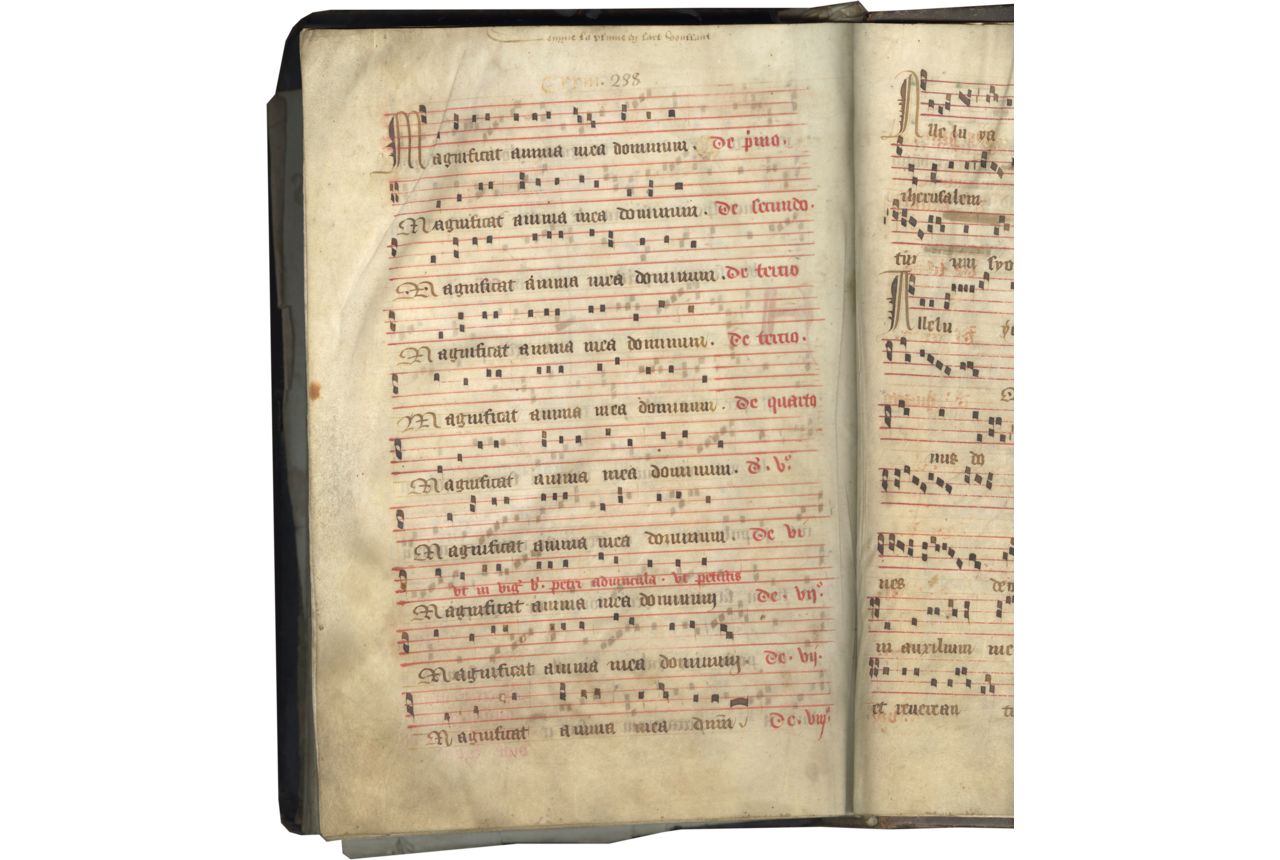 288
Magnificat anima mea dominum. De pimo.
Magnificat anima mea dominum. De secundo.
Magnificat anima mea dominum. De tertio
Magnificat anima mea dominum. De tertio.
Magnificat anima mea dominum. De quarto
Magnificat anima mea dominum. D. vº.
Magnificat anima mea dominum. De vi
ut in vig b. petri advincula. ut petiitis
Magnificat anima mea dominum De. vijº.
Magnificat anima mea dominum De. vij.
Magnificat anima mea dnm. De. viij.
Alle lu ya
iherusalem
tur
Allelu
nus do
nes
in auxilium me
et reverean